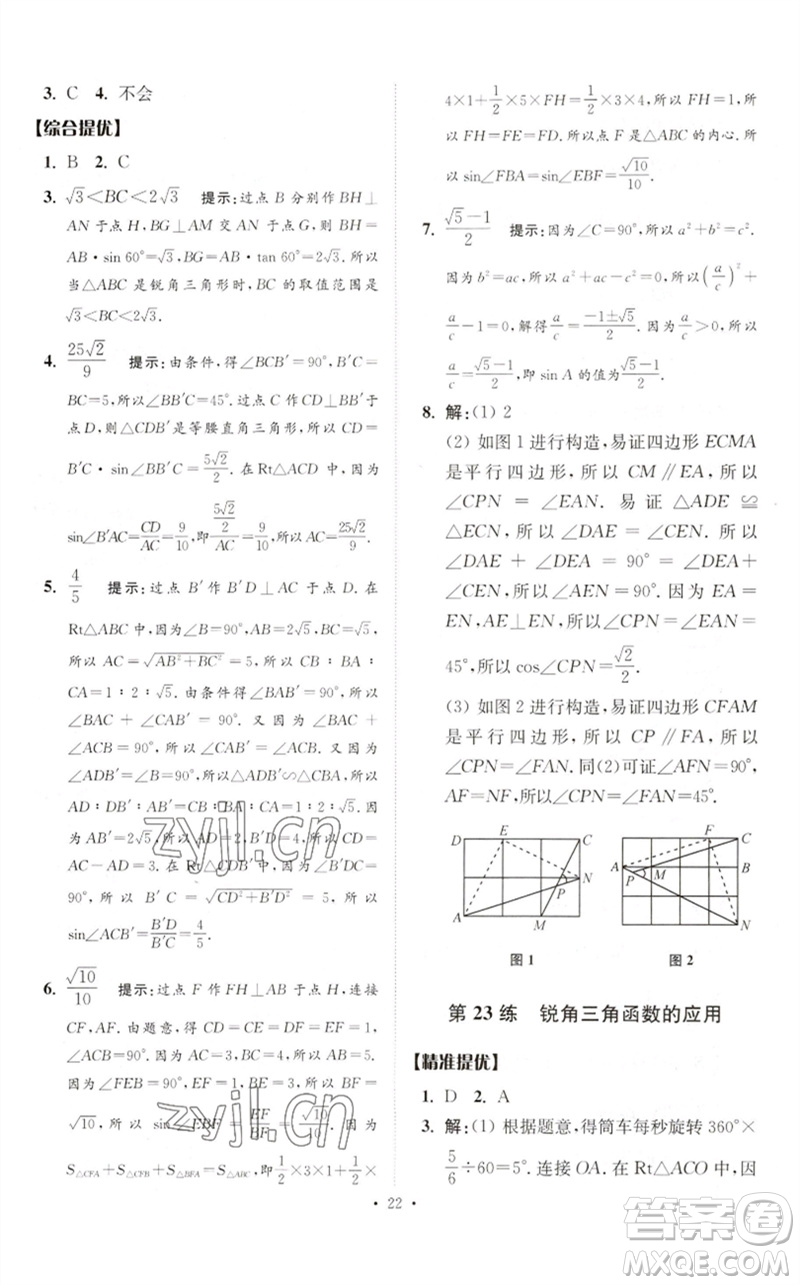 3. C  4. 不会
【综合提优】
1. B  2. C
3. √3＜BC＜2√3  提示：过点 B 分别作 BH⊥
AN 于点 H，BG⊥AM 交 AN 于点 G，则 BH＝
AB・sin 60°＝√3，BG＝AB・tan 60°＝2√3. 所以
当△ABC 是锐角三角形时，BC 的取值范围是
√3＜BC＜2√3.
4. 25√2/9  提示：由条件，得∠BCB′＝90°，B′C＝
BC＝5，所以∠BB′C＝45°. 过点 C 作 CD⊥BB′于
点 D，则△CDB′是等腰直角三角形，所以 CD＝
B′C・sin∠BB′C＝5√2/2. 在 Rt△ACD 中，因为
sin∠B′AC＝CD/AC＝9/10，即(5√2/2)/AC＝9/10，所以 AC＝25√2/9.
5. 4/5  提示：过点 B′作 B′D⊥AC 于点 D. 在
Rt△ABC 中，因为∠B＝90°，AB＝2√5，BC＝√5，
所以 AC＝√(AB²＋BC²)＝5，所以 CB∶BA∶
CA＝1∶2∶√5. 由条件得∠BAB′＝90°，所以
∠BAC＋∠CAB′＝90°. 又因为∠BAC＋
∠ACB＝90°，所以∠ACB＝∠CAB′. 又因为
∠ADB′＝∠B＝90°，所以△ADB′∽△CBA，所以
AD∶DB′∶AB′＝CB∶BA∶CA＝1∶2∶√5. 因
为 AB′＝2√5，所以 AD＝2，B′D＝4，所以 CD＝
AC－AD＝3. 在 Rt△CDB′中，因为∠B′DC＝
90°，所以 B′C＝√(CD²＋B′D²)＝5，所以
sin∠ACB′＝B′D/B′C＝4/5.
6. √10/10  提示：过点 F 作 FH⊥AB 于点 H，连接
CF，AF. 由题意，得 CD＝AD，所以 AB＝5，
∠ACB＝90°. 因为 DE＝2，DF＝1，所以 EF＝1.
因为∠FEB＝90°，EF＝1，BE＝3，所以 BF＝
√10，所以 sin∠EBF＝EF/BF＝1/√10＝√10/10. 因为
S△CFA＋S△CFB＋S△BFA＝S△ABC，即1/2×3×1＋1/2×
4×1＋1/2×5×FH＝1/2×3×4，所以 FH＝1，所
以 FH＝FE＝FD. 所以点 F 是△ABC 的内心. 所
以 sin∠FBA＝sin∠EBF＝√10/10.
7. (√5－1)/2  提示：因为∠C＝90°，所以 a²＋b²＝c².
因为 b²＝ac，所以 a²＋ac＝c²，所以(a/c)²＋
a/c－1＝0，解得a/c＝(－1±√5)/2. 因为a/c＞0，所以
a/c＝(√5－1)/2，即 sin A 的值为(√5－1)/2.
8. 解：(1) 2
(2) 如图 1 进行构造，易证四边形 ECMA
是平行四边形，所以 CM∥EA，所以
∠CPN＝∠EAN. 易证△ADE≌
△ECN，所以∠DAE＝∠CEN. 所以
∠DAE＋∠DEA＝90°＝∠DEA＋
∠CEN，所以∠AEN＝90°. 因为 EA＝
EN，AE⊥EN，所以∠CPN＝∠EAN＝
45°，所以 cos∠CPN＝√2/2.
(3) 如图 2 进行构造，易证四边形 CFAM
是平行四边形，所以 CP∥FA，所以
∠CPN＝∠FAN. 同(2)可证∠AFN＝90°，
AF＝NF，所以∠CPN＝∠FAN＝45°.
D E C
P N
A M
图 1
F C
A P M B
N
图 2
第 23 练  锐角三角函数的应用
【精准提优】
1. D  2. A
3. 解：(1) 根据题意，得筒车每秒旋转 360°×
5/6÷60＝5°. 连接 OA. 在 Rt△ACO 中，因
・22・
zyjl.cn
zyjl.cn
答案卷
MXQE.COM